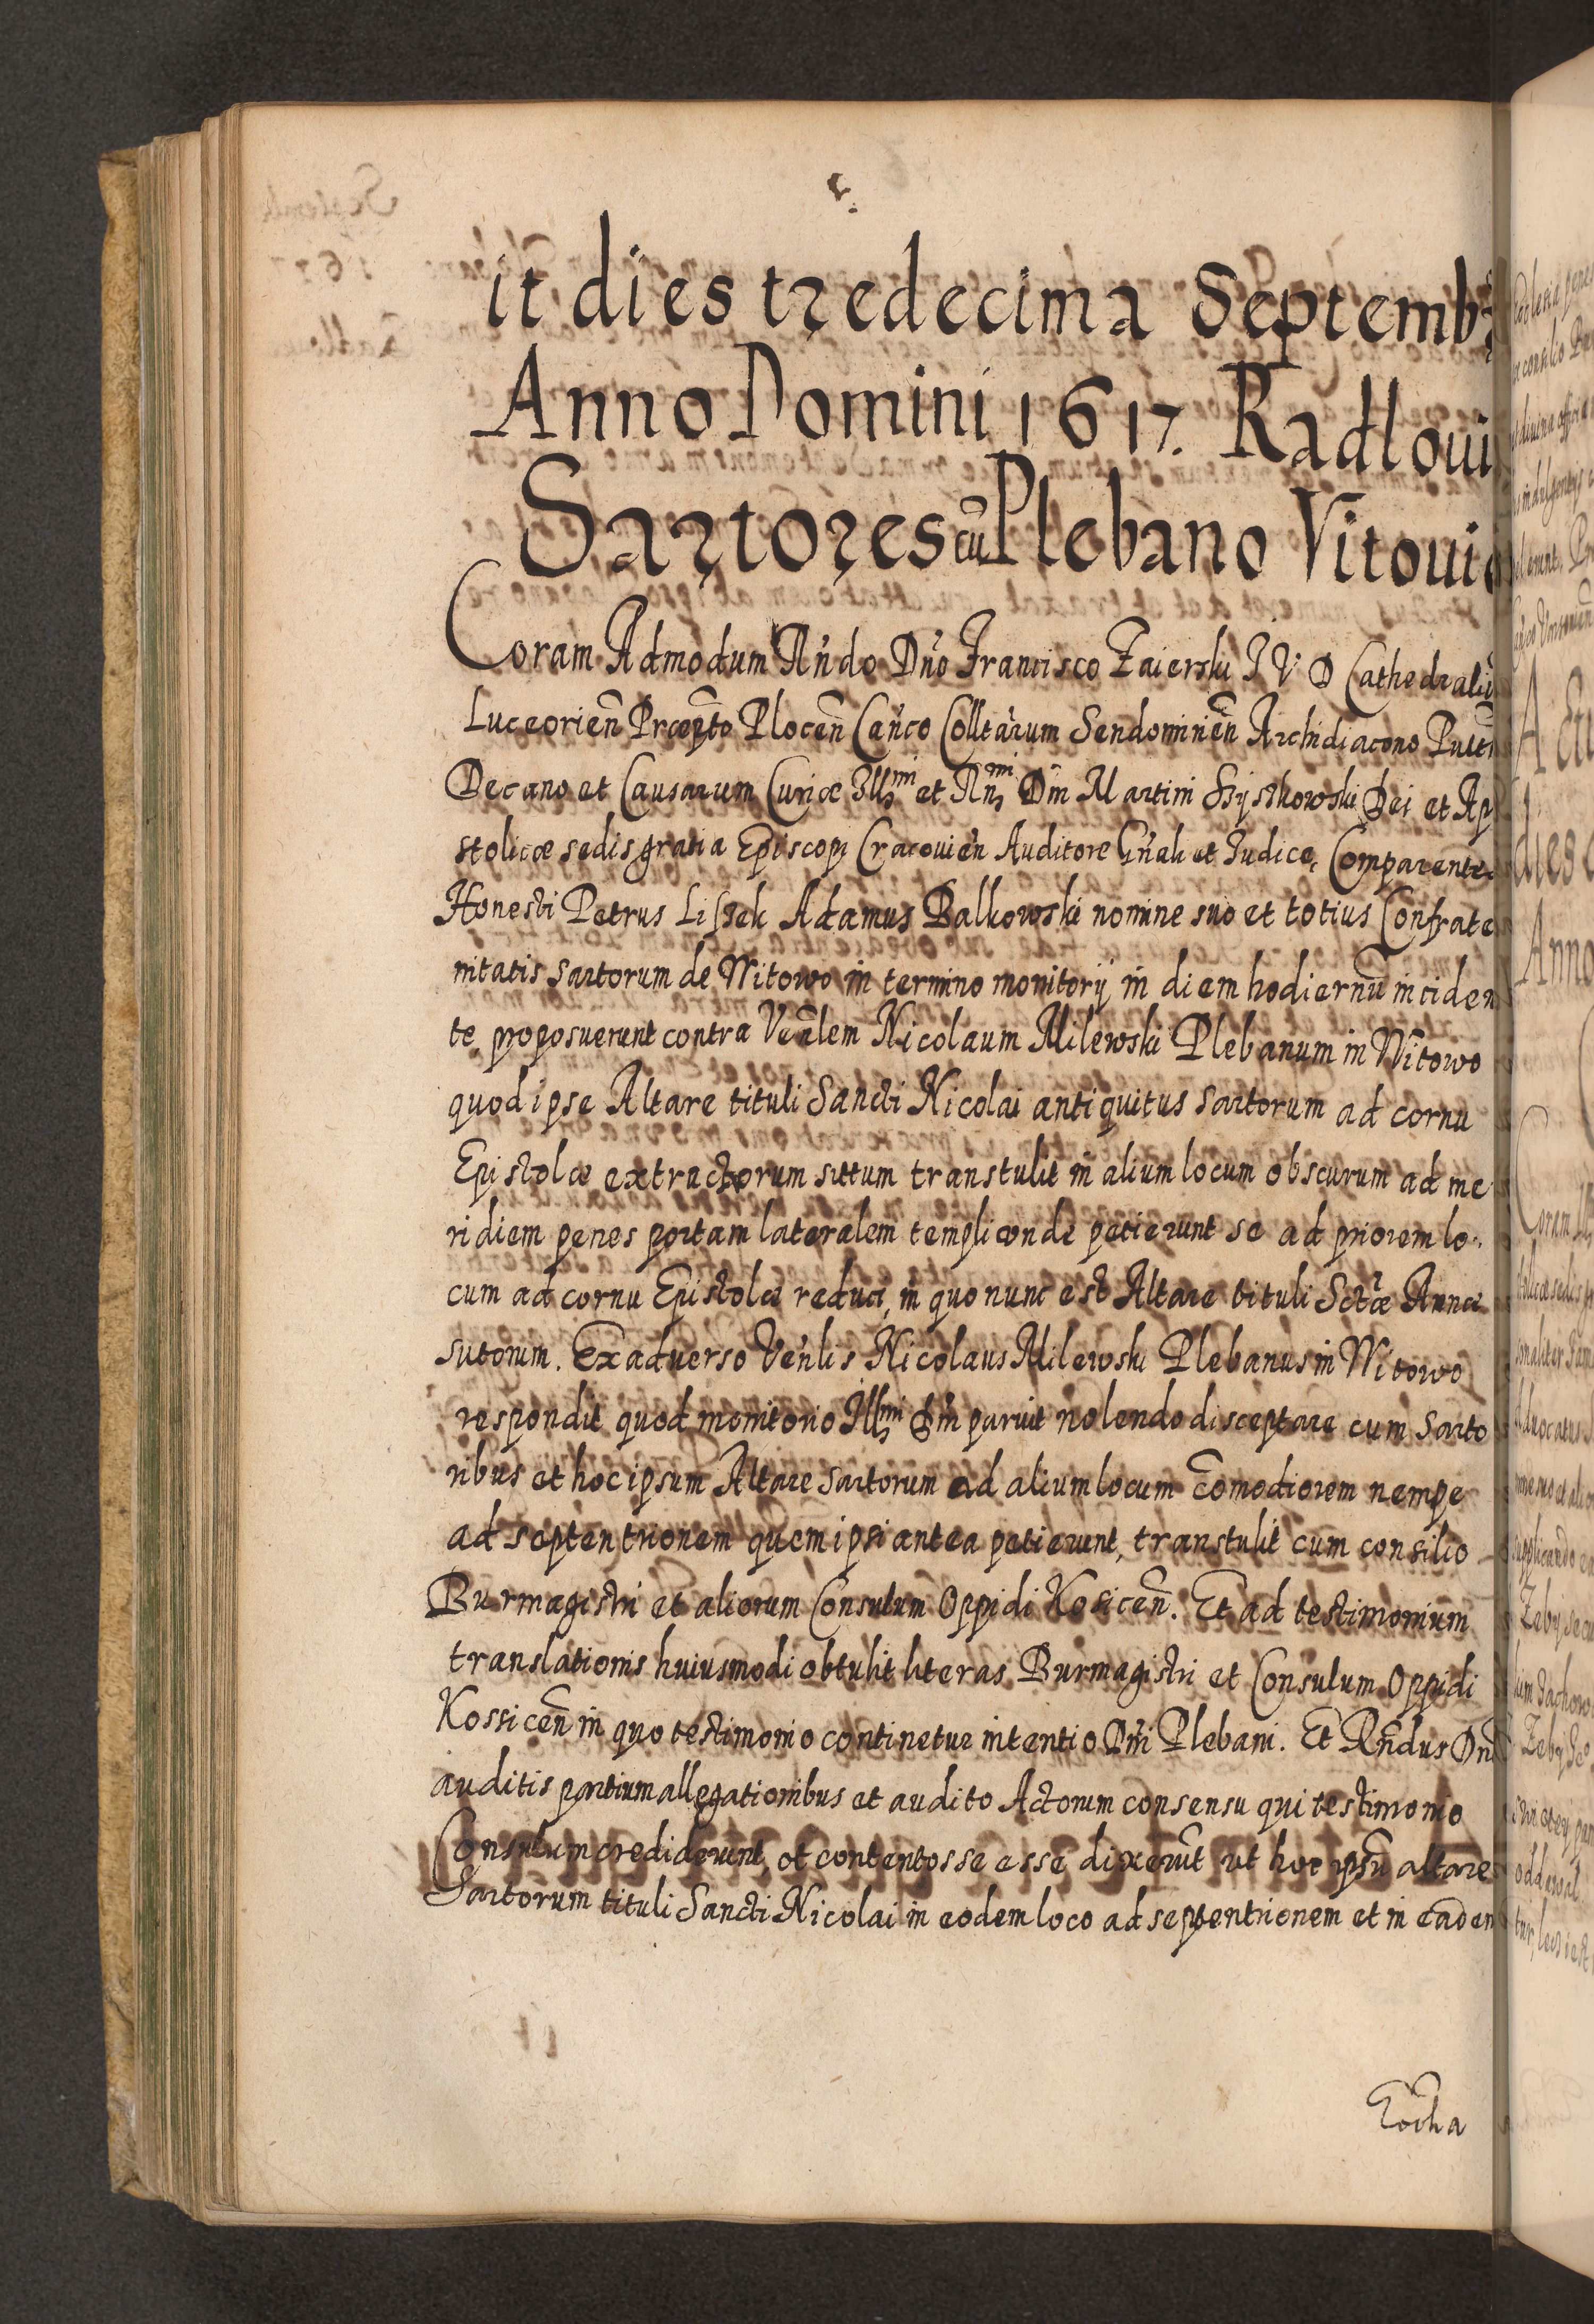 it dies tredecima Septemb
Anno Domini 1617. Radloui
Sartores cũ Plebano Vitoui
Coram Admodum Rñdo Dño Francisco Zaierski I V D Cathedraliũ
Luceorieñ Præpto Ploceñ Cañco Colltarum Sendomirieñ Archidiacono Pult
Decano et Causarum Curiæ Illmi et Rñmi Dñi Martini Szyszkowski Dei et Ap
stolicæ sedis gratia Episcopi Cracouieñ Auditore Gñali et Iudice, Comparente
Honesti Petrus Lissek Adamus Balkowski nomine suo et totius Confrate
nitatis sartorum de Witowo in termino monitorij in diem hodiernũ inciden
te proposuerunt contra Veñlem Nicolaum Milewski Plebanum in Witowo
quod ipse Altare tituli Sancti Nicolai antiquitus sartorum ad cornu
Epistolæ extructorum situm transtulit in alium locum obscurum ad me
ridiem penes portam lateralem templi unde petierunt se ad priorem lo.
cum ad cornu Epistolæ reduci, in quo nunc est Altare tituli Sctæ Annæ
sutorum. Ex aduerso Veñlis Nicolaus Milewski Plebanus in Witowo
respondit quod monitorio Illmi Dñi paruit nolendo disceptare cum sarto
ribus et hoc ipsum Altare sartorum ad alium locum cõmodiorem nempe
ad septentrionem quem ipsi antea petierunt, transtulit cum consilio
Burmagistri et aliorum Consulum Oppidi Kosiceñ. Et ad testimonium
translationis huiusmodi obtulit literas Burmagistri et Consulum Oppidi
Kossiceñ in quo testimonio continetur intentio Dñi Plebani. Et Rñdus Dn
auditis partium allegationibus et audito Actorum consensu qui testimonio
Consulum crediderunt, et contentos se esse dixerũt ut hoc ipsũ altare
Sartorum tituli Sancti Nicolai in eodem loco ad septentrionem et in eadem